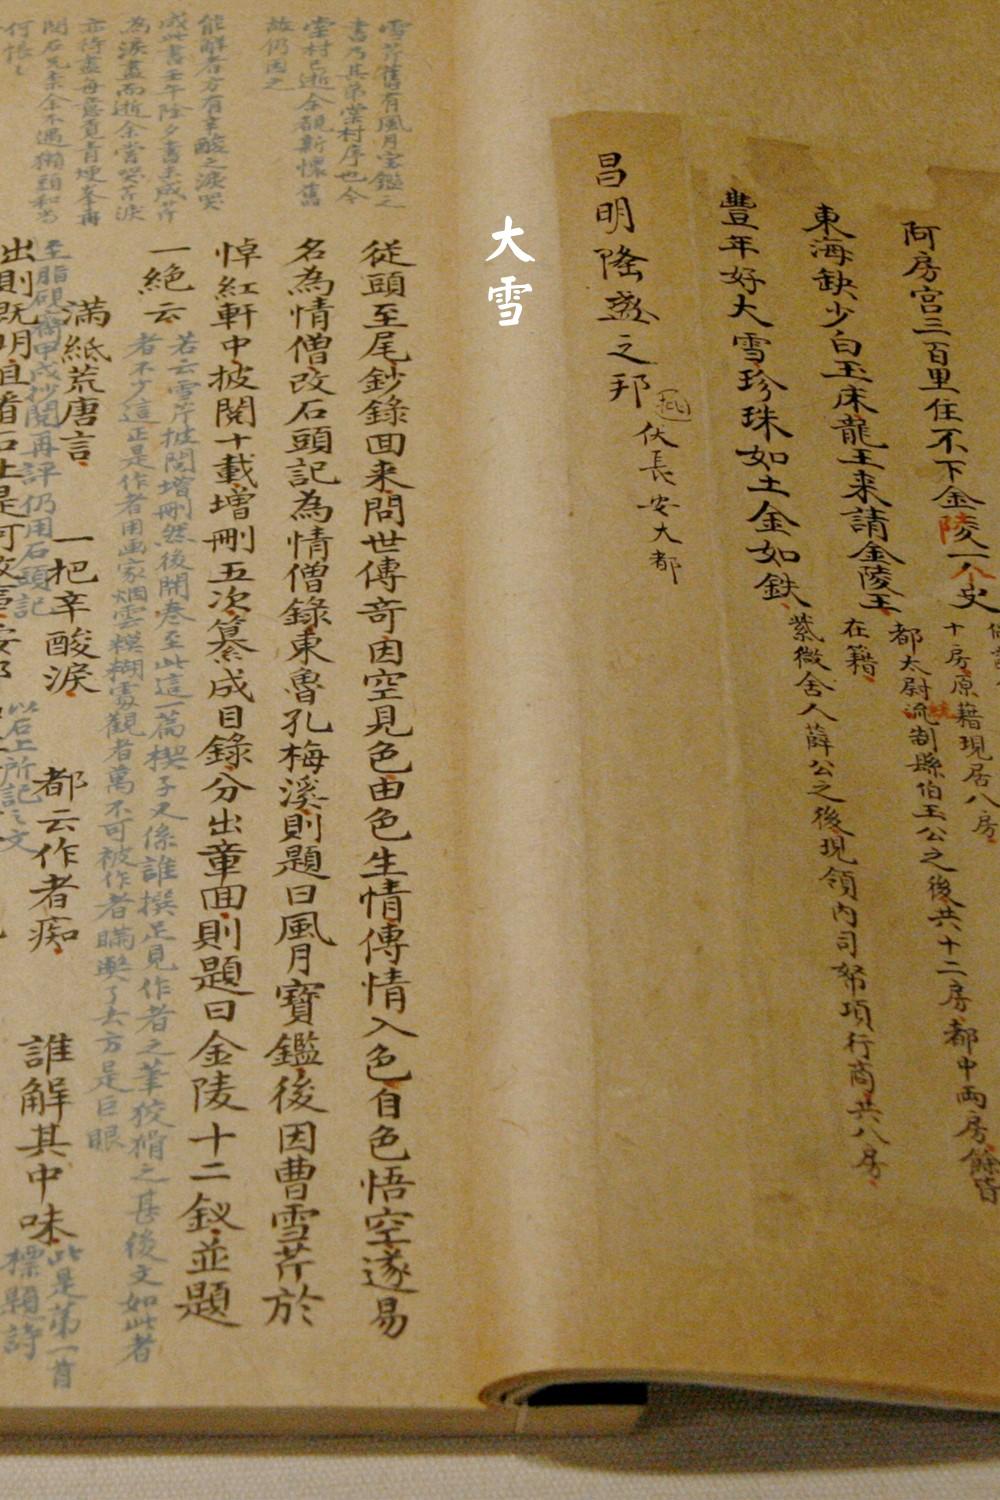 阿房宫三百里住不下金陵一个史
十房原籍現居八房
東海缺少白玉床龍王来請金陵王
都太尉流制縣伯王公之後共十二房都中两房餘皆
統
在籍
豐年好大雪珍珠如土金如鉄
紫微舍人薛公之後現領內司帑項行商共八房
昌明隆盛之邦
伏長安大都
大雪
雪芹舊有風月宝鑑之
書乃其弟棠村序也今
棠村已逝余覩新懷舊
故仍因之
從頭至尾鈔錄囬来問世傳奇因空見色由色生情傳情入色自色悟空遂易
名為情僧改石頭記為情僧錄東魯孔梅溪則題曰風月寶鑑後因曹雪芹於
悼紅軒中披閱十載增刪五次纂成目錄分出章囬則題曰金陵十二釵並題
一絶云
若云雪芹披閱增刪然後開卷至此這一篇楔子又係誰撰足見作者之筆狡猾之甚後文如此者
者不少這正是作者用画家烟雲糢糊處觀者萬不可被作者瞞蔽了去方是巨眼
能解者方有辛酸之淚哭
成此書壬午除夕書未成芹
為淚盡而逝余嘗哭芹淚
亦待盡每意覔青埂峯再
問石兄余不遇獺頭和尚
何悵悵
滿紙荒唐言 一把辛酸淚 都云作者痴 誰解其中味
此是第一首
標題詩
至脂硯齋甲戌抄閱再評仍用石頭記
出則既明且看石上是何故事
以石上所記之文